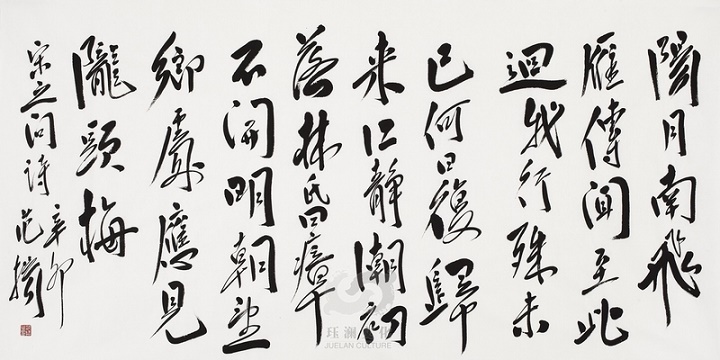 陽月南飛
雁傳聞至此
迴我行殊未
已何日復歸
来江静潮初
落林昏瘴
不開明朝望
鄉處應見
隴頭梅
宋之问诗
辛卯
范
JUELAN CULTURE